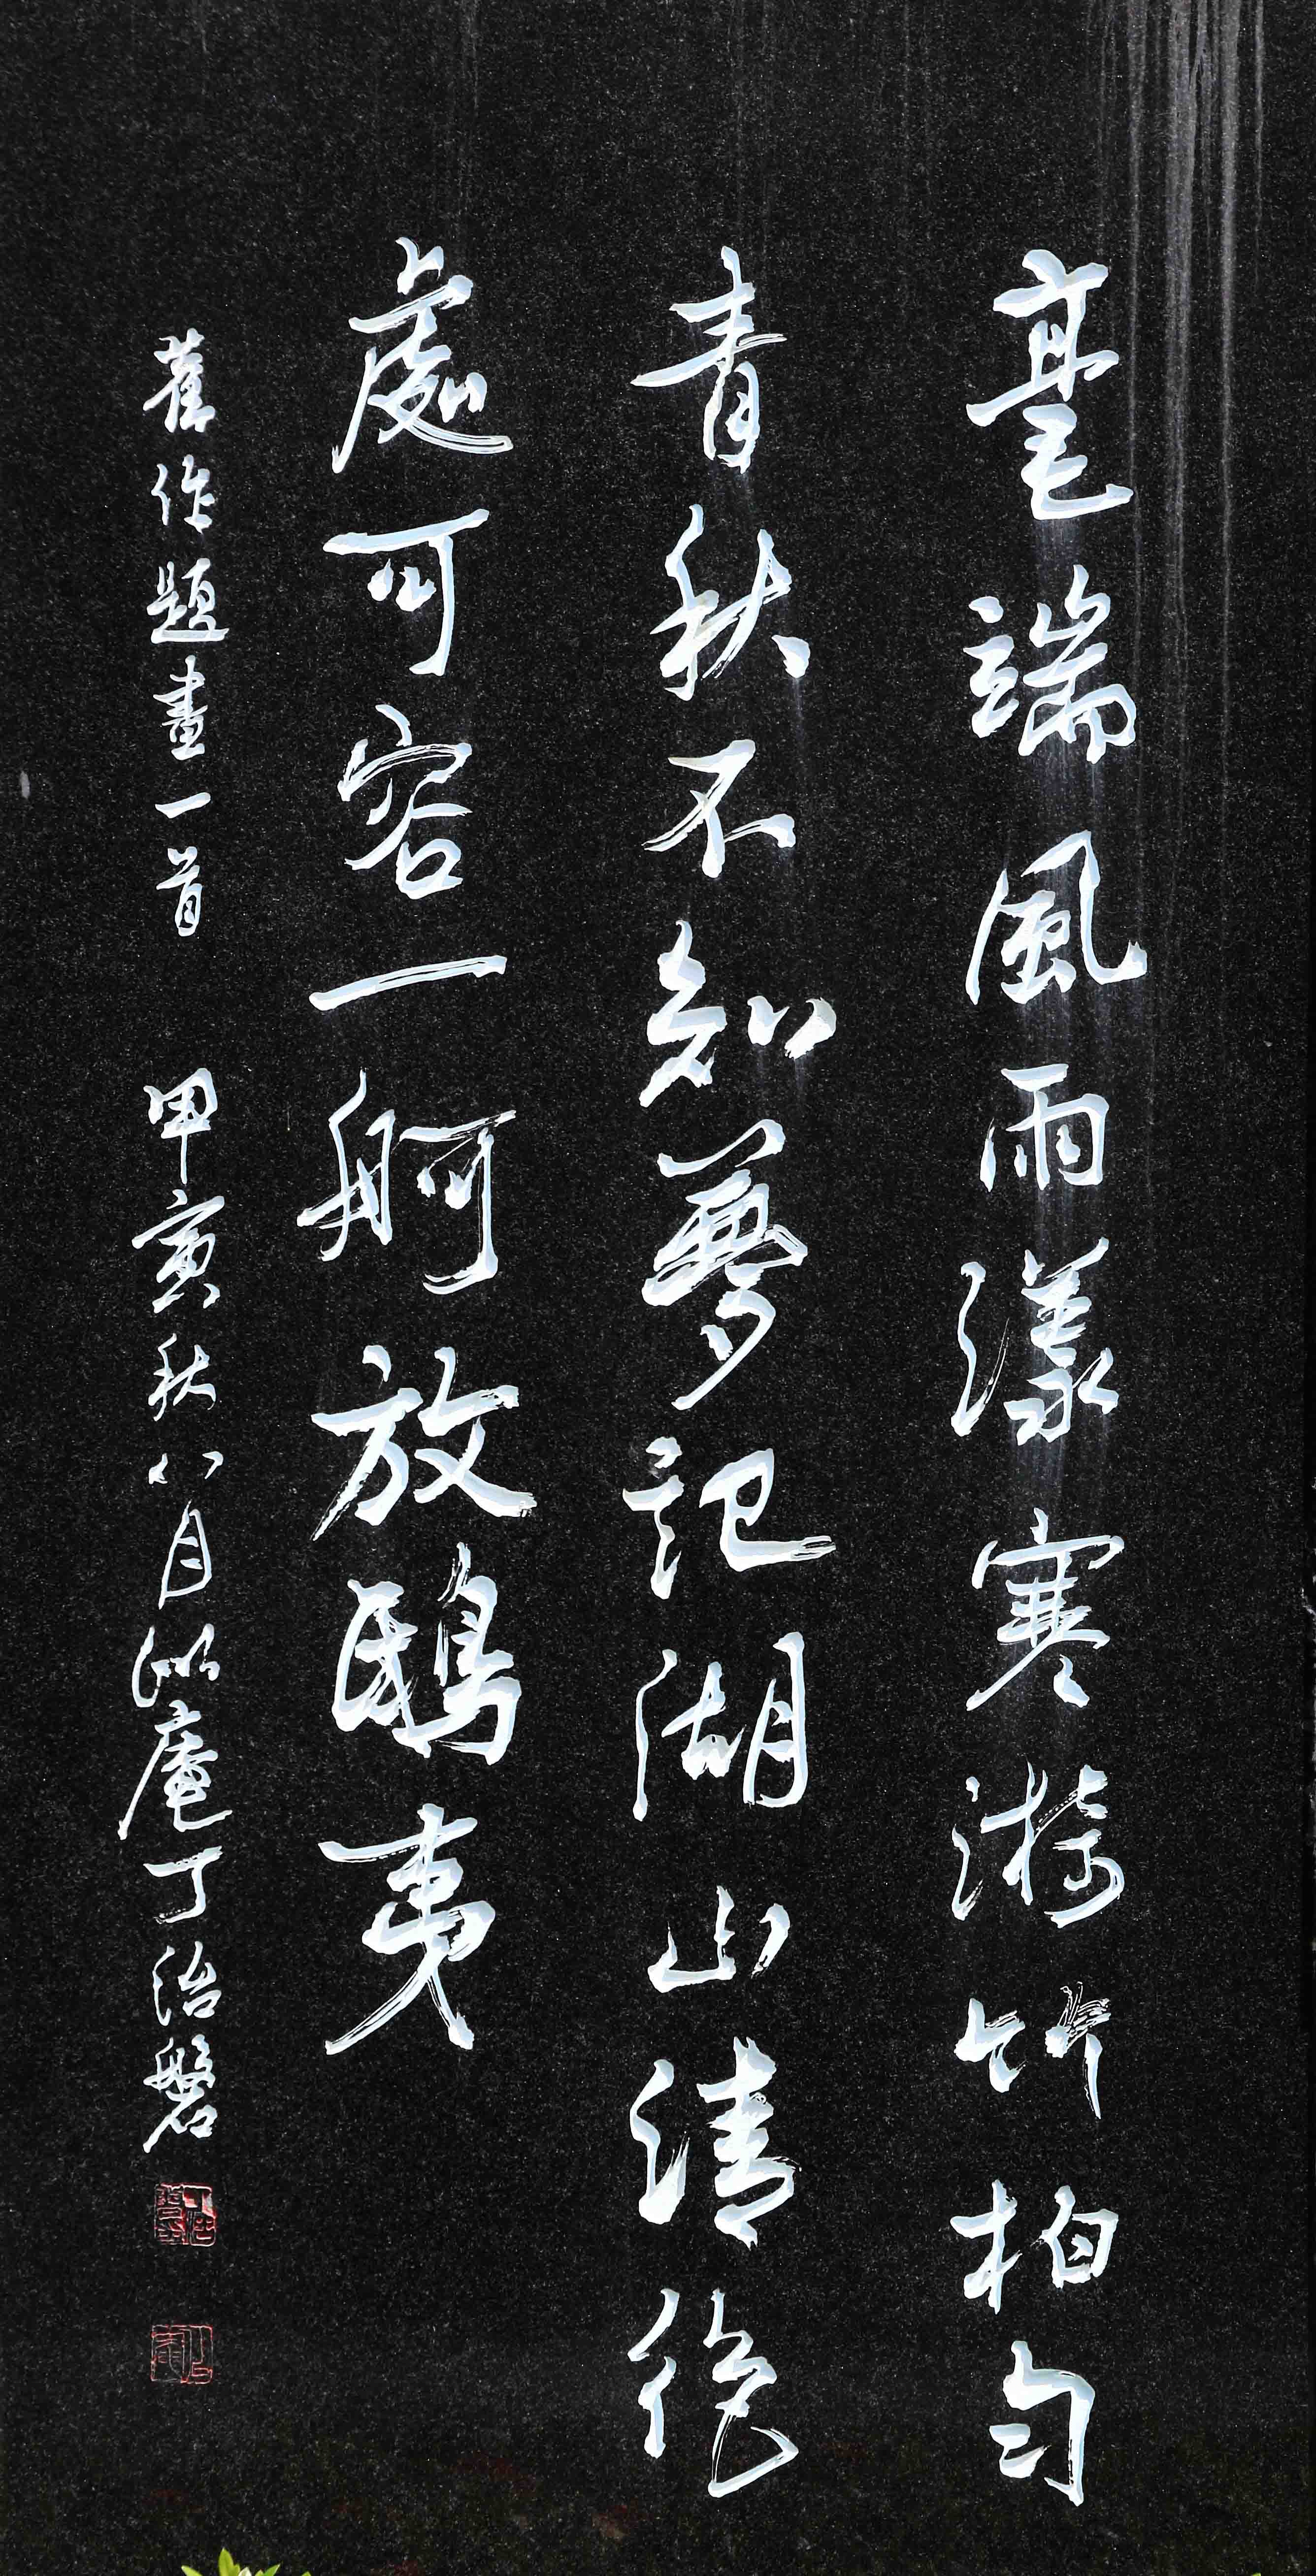 毫端風雨漾寒漪竹柏勻
青秋不知夢記湖山清絕
處可容一舸放鴟夷
舊作題畫一首 甲寅秋八月似庵丁治磐